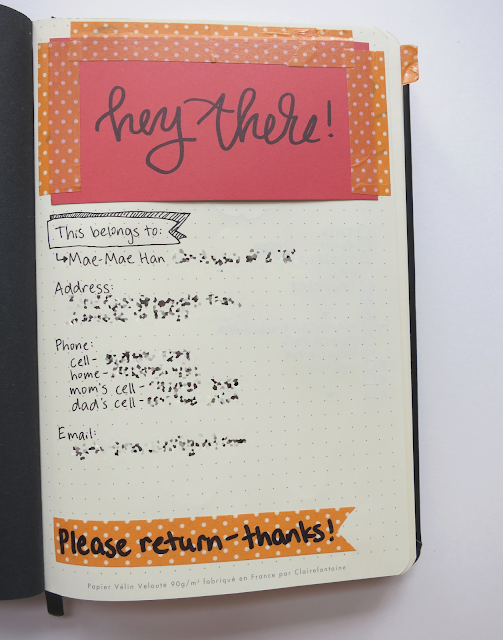 hey there!
This belongs to:
↳Mae-Mae Han
Address:
Phone:
cell-
home-
mom's cell-
dad's cell-
Email:
Please return-thanks!
Papier Vélin Velouté 90g/m² fabriqué en France par Clairefontaine